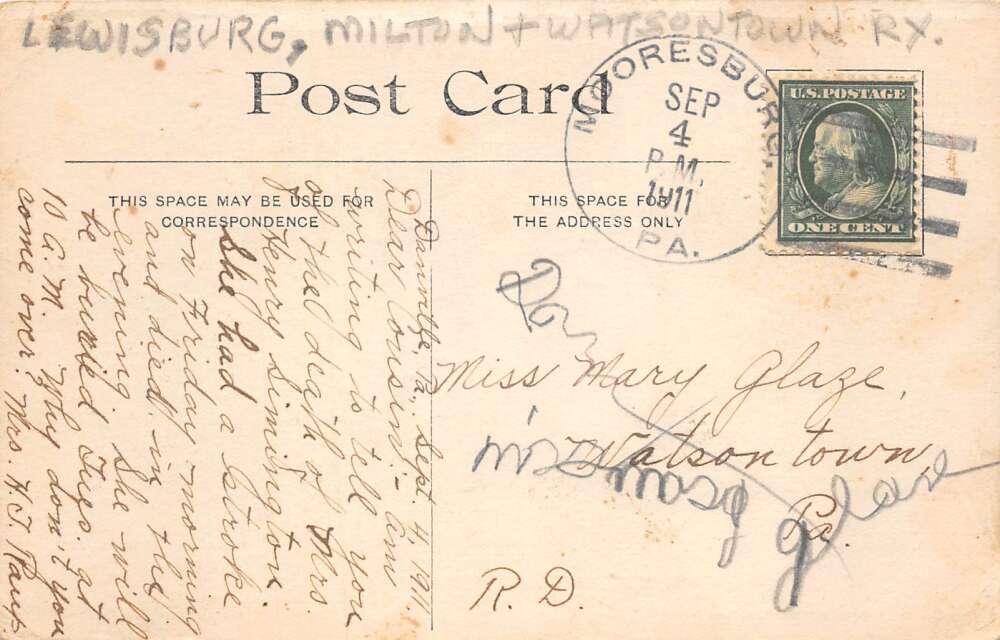 LEWISBURG, MILTON + WATSONTOWN RY.
Post Card
MOORESBURG,
SEP
4
P.M.
1911
PA.
U.S. POSTAGE
ONE CENT
THIS SPACE MAY BE USED FOR
CORRESPONDENCE
THIS SPACE FOR
THE ADDRESS ONLY
Danville, Pa., Sept. 4, 1911.
Dear Cousin:- Am
writing to tell you
of the death of Mrs.
Henry Simington.
She had a stroke
on Friday morning
and died in the
evening. She will
be buried Tues. at
10 A.M. Why don't you
come over? Mrs. H. J.
Miss Mary Glaze,
Watsontown,
Pa.
R. D.